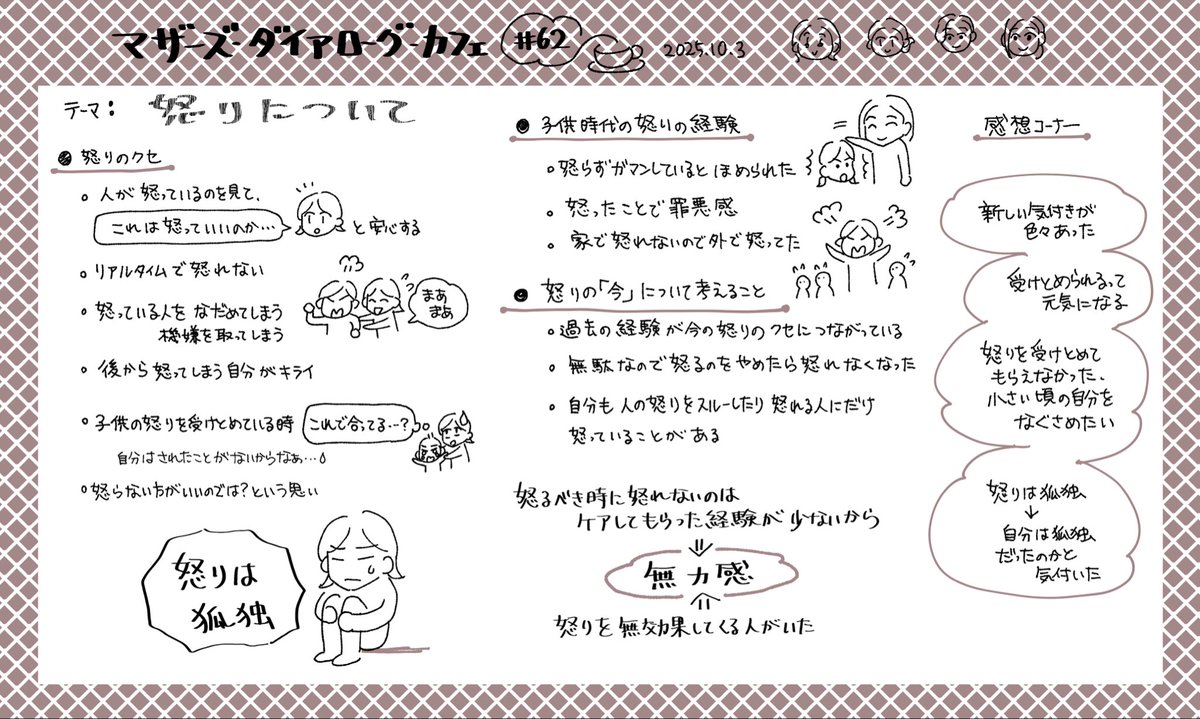 マザーズ・ダイアローグ・カフェ #62 2025.10.3
テーマ: 怒りについて
怒りのクセ
人が怒っているのを見て、
これは怒っていいのか… と安心する
リアルタイムで怒れない
怒っている人をなだめてしまう
機嫌を取ってしまう
まあ
まあ
後から怒ってしまう自分がキライ
子供の怒りを受けとめている時
これで合ってる…?
自分はされたことがないからなぁ…
怒らない方がいいのでは?という思い
怒りは
孤独
子供時代の怒りの経験
怒らずガマンしているとほめられた
怒ったことで罪悪感
家で怒れないので外で怒ってた
怒りの「今」について考えること
過去の経験が今の怒りのクセにつながっている
無駄なので怒るのをやめたら怒れなくなった
自分も人の怒りをスルーしたり怒れる人にだけ
怒っていることがある
怒るべき時に怒れないのは
ケアしてもらった経験が少ないから
無力感
怒りを無効果してくる人がいた
感想コーナー
新しい気付きが
色々あった
受けとめられるって
元気になる
怒りを受けとめて
もらえなかった、
小さい頃の自分を
なぐさめたい
怒りは孤独
↓
自分は孤独
だったのかと
気付いた